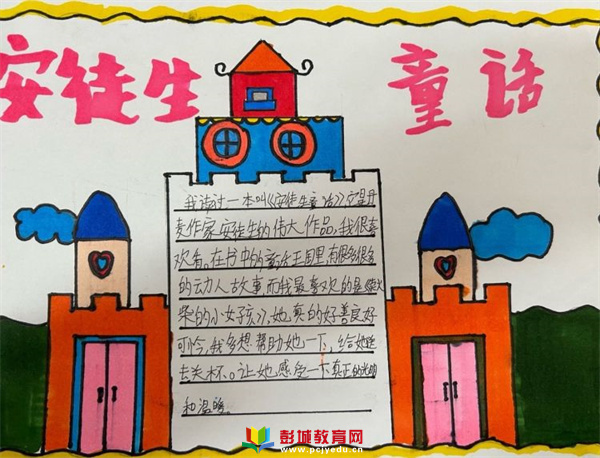 安徒生童话
我读过一本叫《安徒生童话》它是丹
麦作家安徒生的伟大作品,我很喜
欢看。在书中的童话王国里,有很多很多
的动人故事,而我最喜欢的是《卖火
柴的小女孩》,她真的好善良好
可怜,我多想帮助她一下,给她
去关怀。让她感受一下真正的光明
和温暖。
彭城教育网
www.pcjyedu.cn